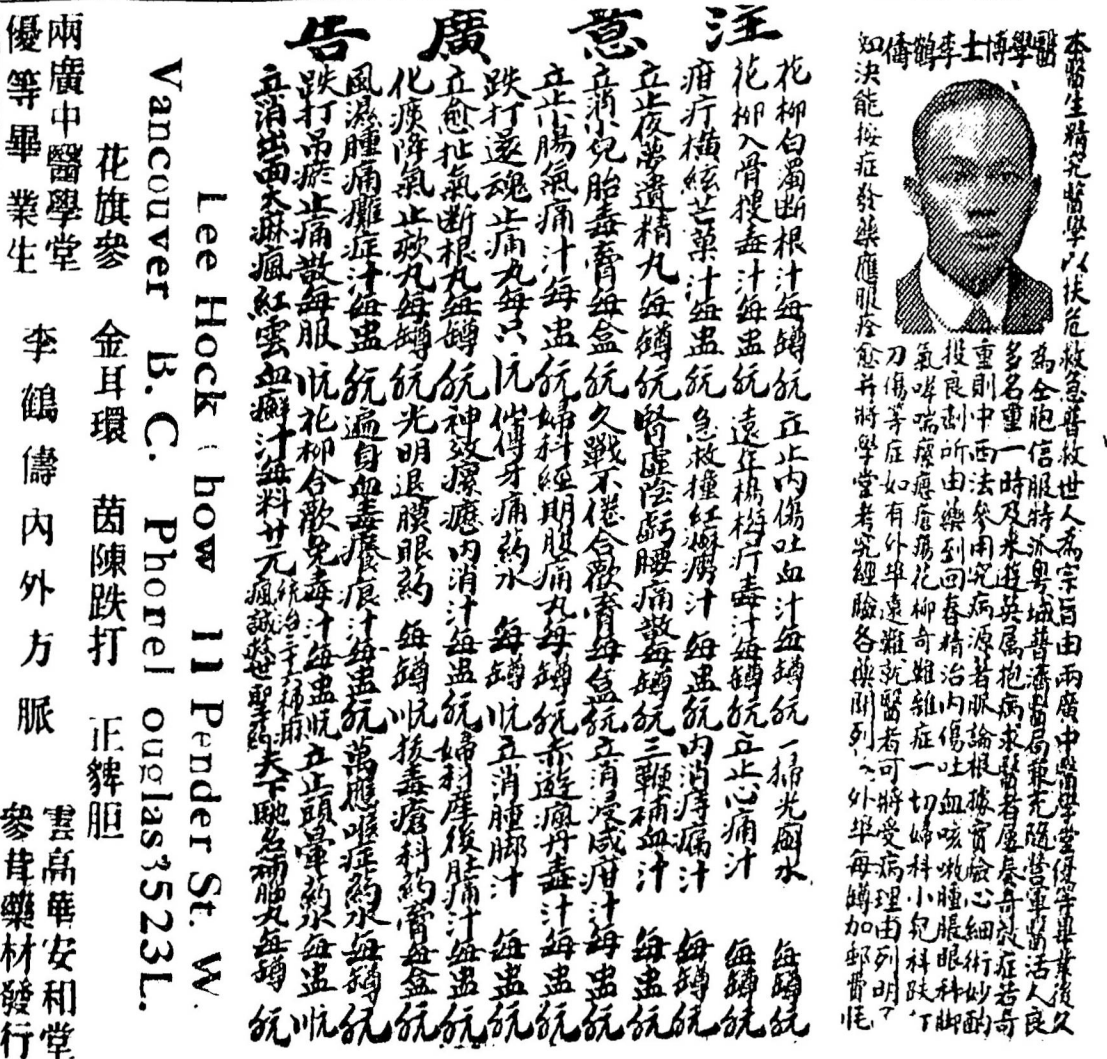 醫學博士李鶴儔
本醫生精究醫學以扶危救急普救世人為宗旨由兩廣中醫學堂優等畢業後久
為仝胞信服特派粵城普濟醫局兼充隨營軍醫活人良
多名重一時及來遊英属抱病求醫者屢奏奇效症若奇
重則中西法參用究病源者脈論根據實驗心細術妙酌
投良劑所由藥到回春精治內傷吐血咳嗽腫脹眼科脚
氣哮喘瘰癧瘡瘍花柳奇難雜症一切婦科小兒科跌打
刀傷等症如有外埠遠難就醫者可將受病理由列明
知決能按症發藥應服痊愈并將學堂考究經驗各藥開列 外埠每罇加郵費
注意廣告
花柳白濁断根汁每罇 立止內傷吐血汁每罇 一掃光癬水 每罇
花柳入骨搜毒汁每盅 遠年楊梅疔毒汁每罇 立止心痛汁 每罇
疳疔橫絃芒菓汁每盅 急救撞紅淋癆汁 每盅 內消痔瘡汁 每罇
立止夜夢遺精丸 每罇 腎虛陰虧腰痛散每罇 三鞭補血汁 每盅
立消小兒胎毒膏每盒 久戰不倦合歡膏每盒 立消浸咸疳汁每盅
立止小腸氣痛汁每盅 婦科經期腹痛丸每罇 赤遊風丹毒汁每盅
跌打還魂止痛丸每只 牙痛葯水 每罇 立消腫脚汁 每盅
立愈扯氣断根丸每罇 神效瘰癧內消汁每盅 婦科產後肚痛汁每盅
化痰降氣止欬丸每罇 光明退膜眼葯 每罇 拔毒瘡科葯膏每盒
風濕腫痛攤症汁每盅 遍身血毒癢痕汁每盅 萬應喉症葯水每罇
跌打吊瘀止痛散每服 花柳合歡免毒汁每盅 立止頭暈葯水每盅
立消出面大麻瘋紅雲血癬汁每料廿元 統治三十六種麻瘋誠救世聖葯 天下馳名補腦丸每罇
Lee Hock how 11 Pender St. W.
Vancouver B.C. Phorel ouglas 3523L.
花旗參 金耳環 茵陳跌打 正髀胆
兩廣中醫學堂
優等畢業生 李鶴儔內外方脈
雲高華安和堂
參茸藥材發行